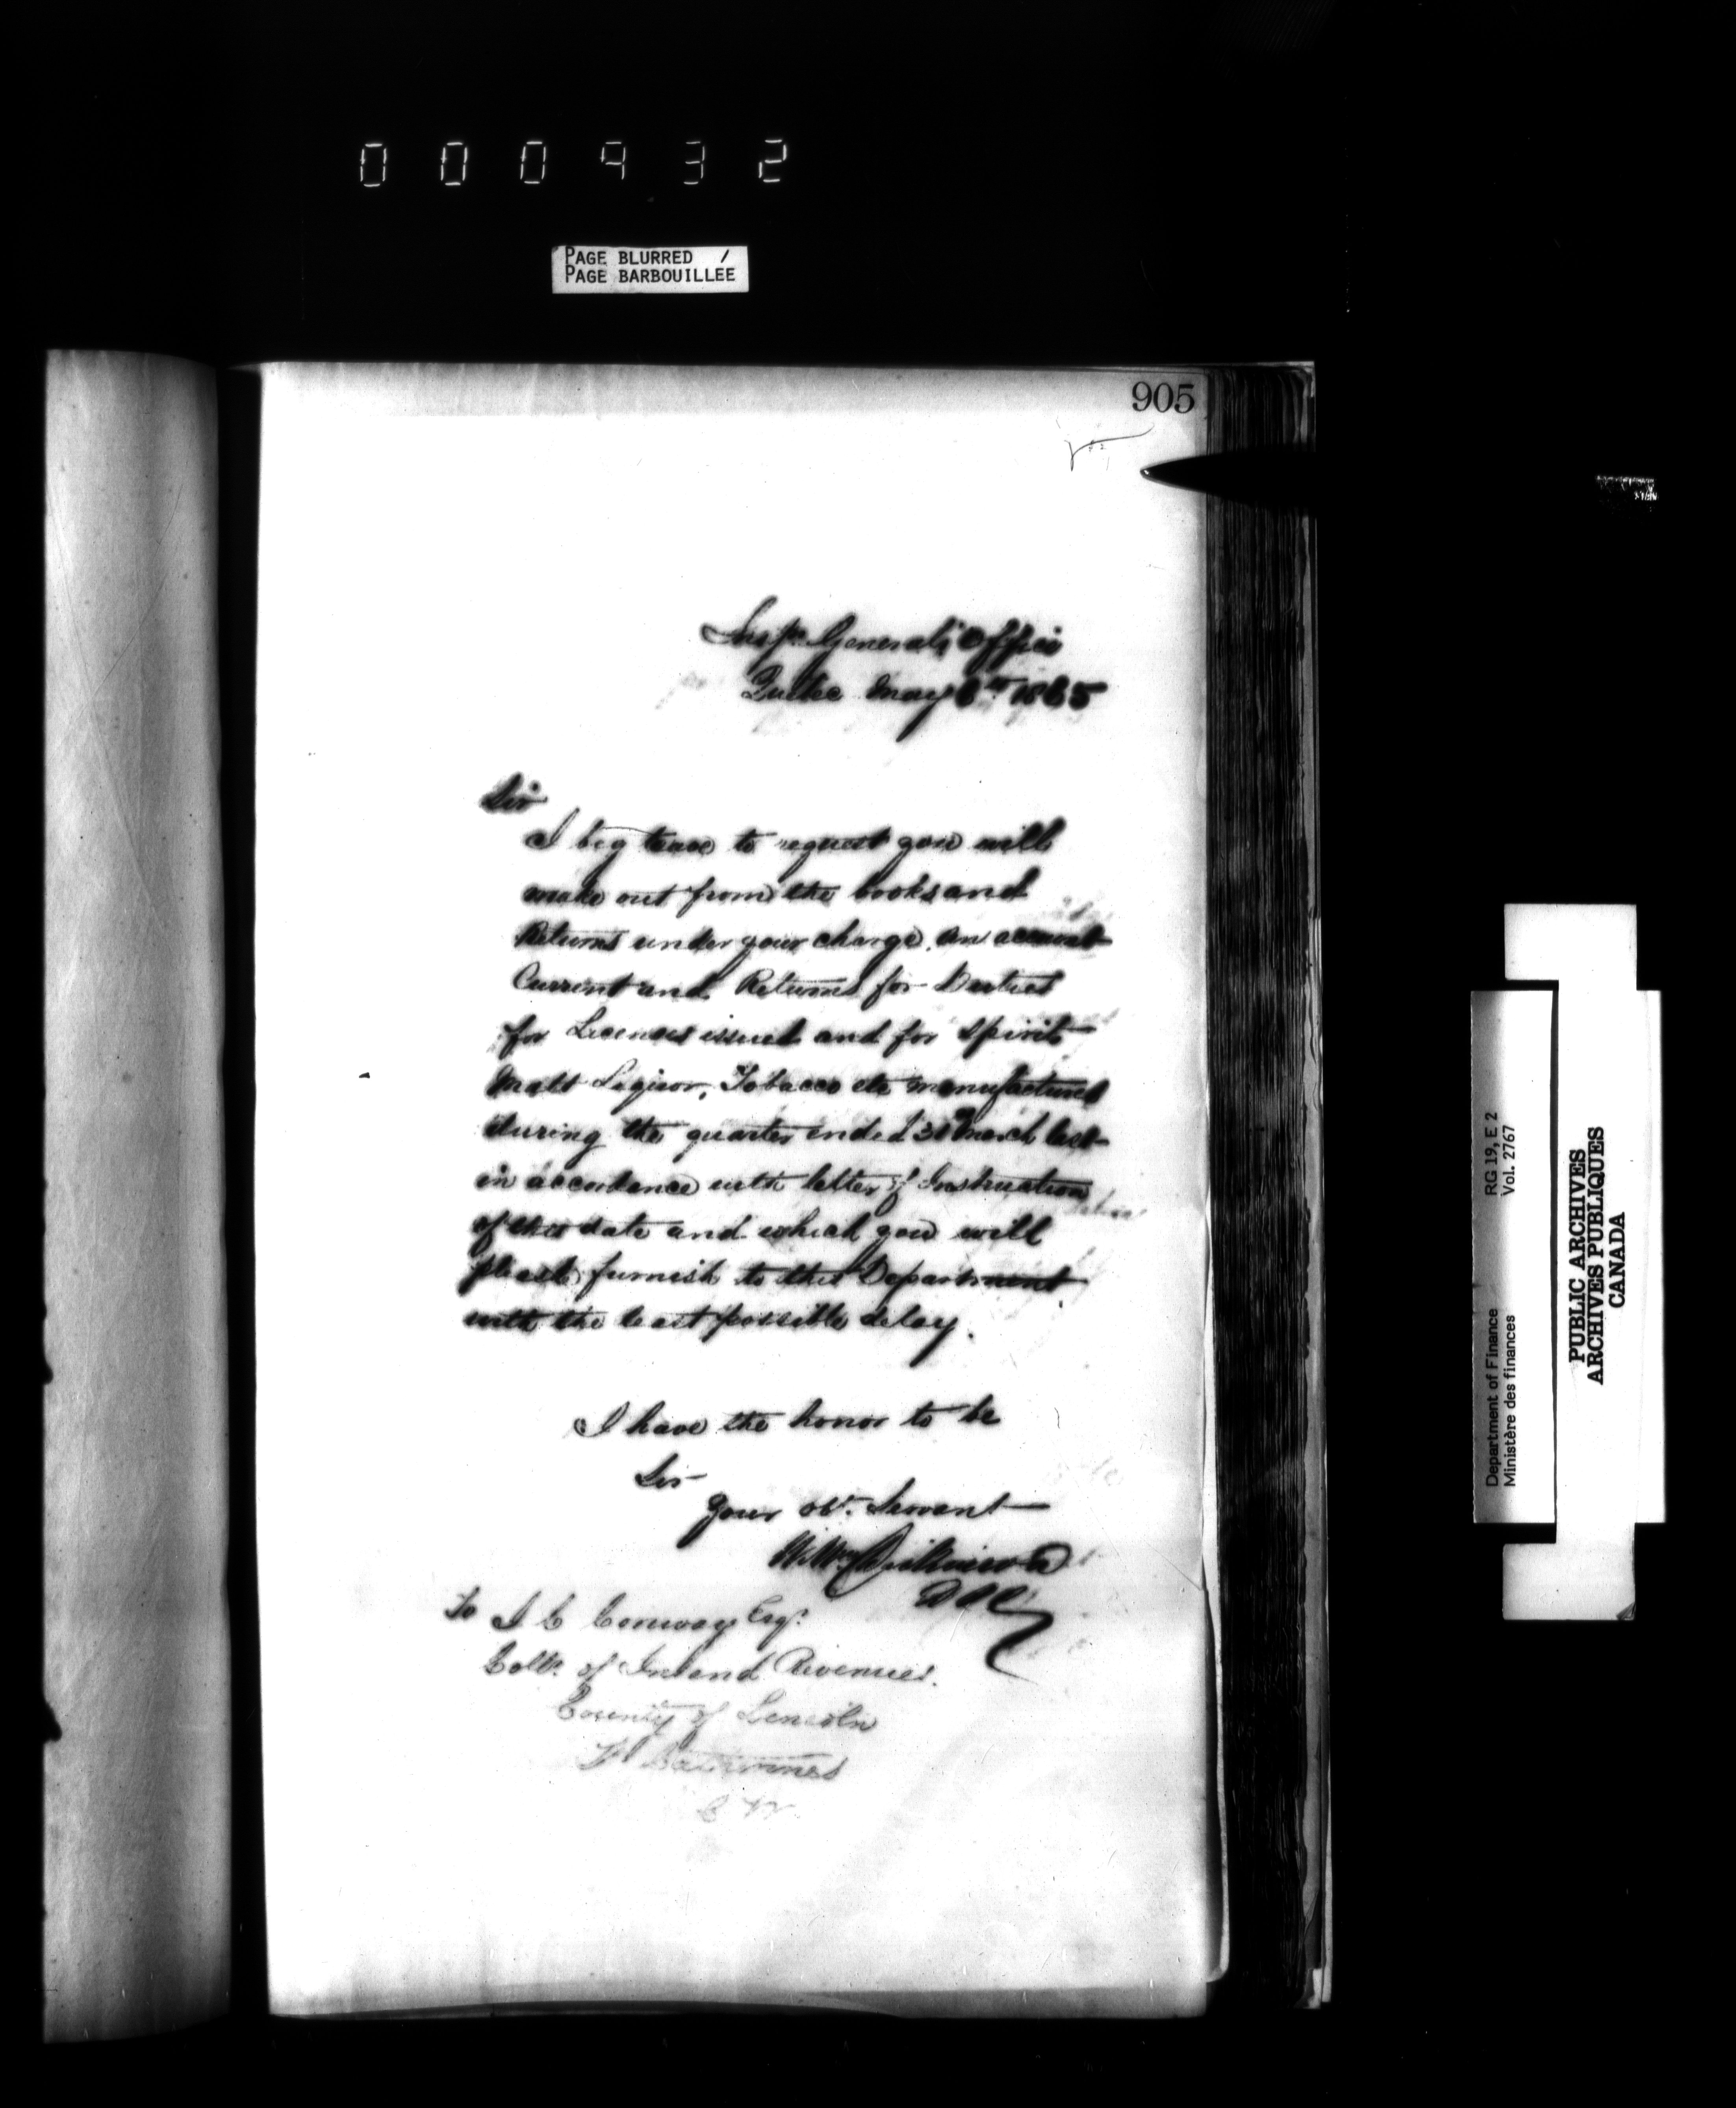 000932
PAGE BLURRED /
PAGE BARBOUILLEE
905
Insp. General's Office
Quebec May 8th 1865
Sir
I beg leave to request you will
make out from the books and
Returns under your charge, an account
Current and Returns for Duties
for Licenses issued and for Spirits
Malt Liquor, Tobacco etc manufactured
during the quarter ended 31st March last
in accordance with letter of Instruction
of this date and which you will
please furnish to this Department
with the least possible delay.
I have the honor to be
Sir
Your obt. Servant
To J C Conway Esqr.
Collr. of Inland Revenues.
County of Lincoln
St Catherines
C W.
Department of Finance RG 19, E 2
Ministère des finances Vol. 2767
PUBLIC ARCHIVES
ARCHIVES PUBLIQUES
CANADA